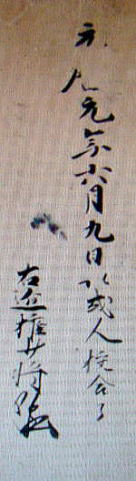 元久元年六月九日以或人挍合了
右近権少将